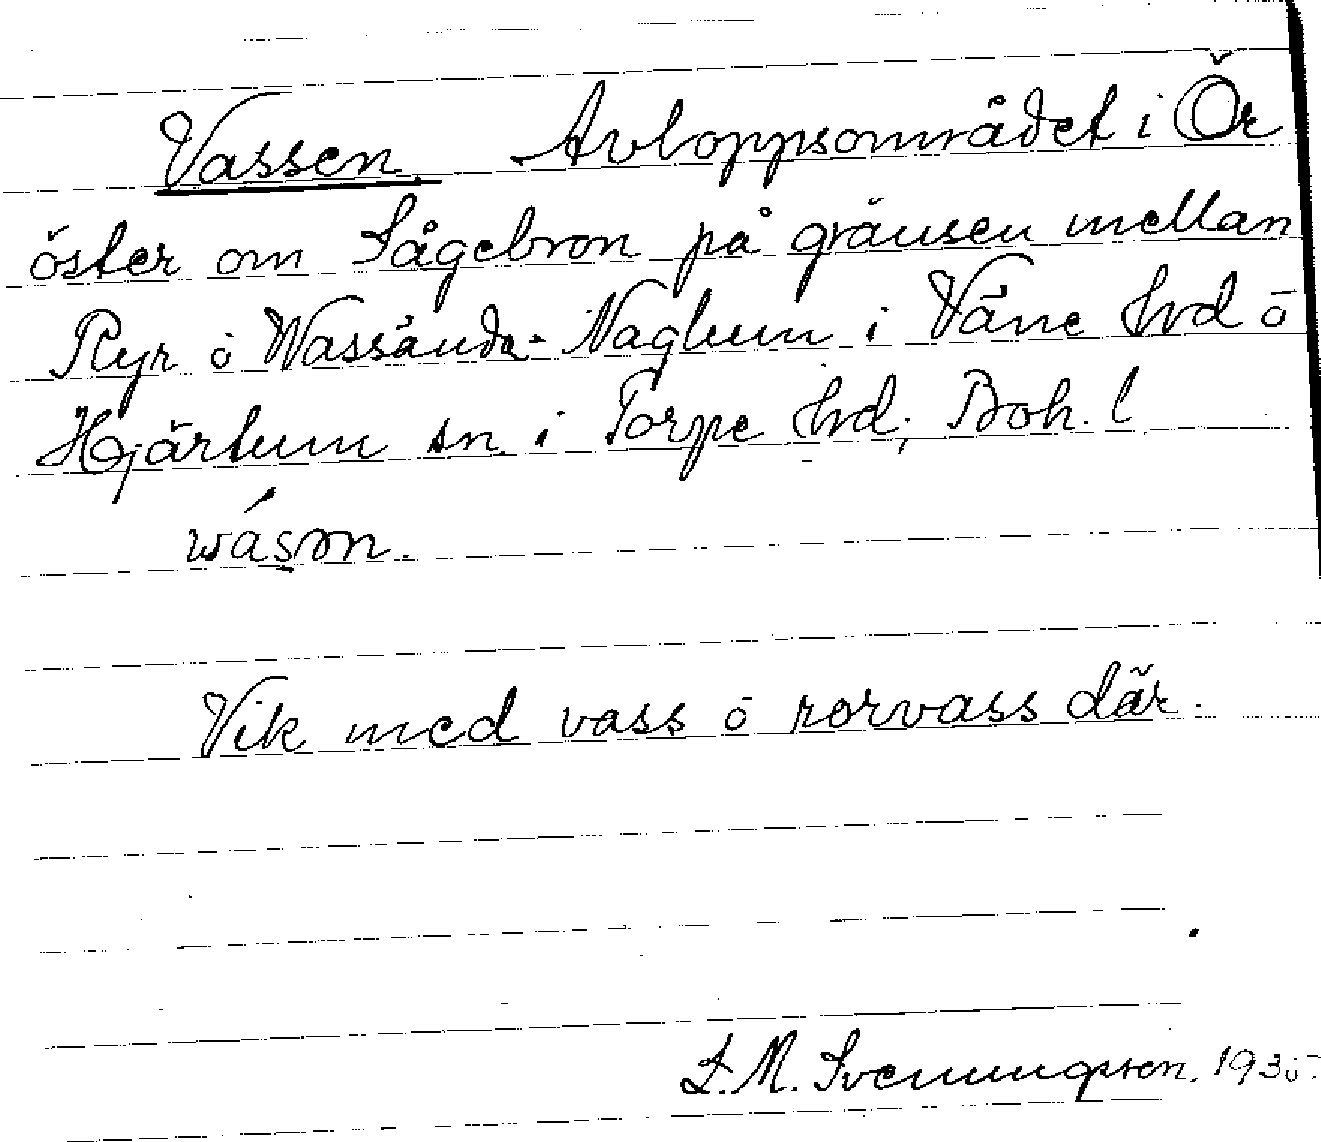 Vassen. Avloppsområdet i Ör
öster om Sågebron på gränsen mellan
Ryr ō Wassända-Naglum i Väne hrd ō
Hjärtum sn. i Torpe hrd; Boh. l
wásɷn.
Vik med vass ō rorvass där.
L. M. Svenungsson. 193